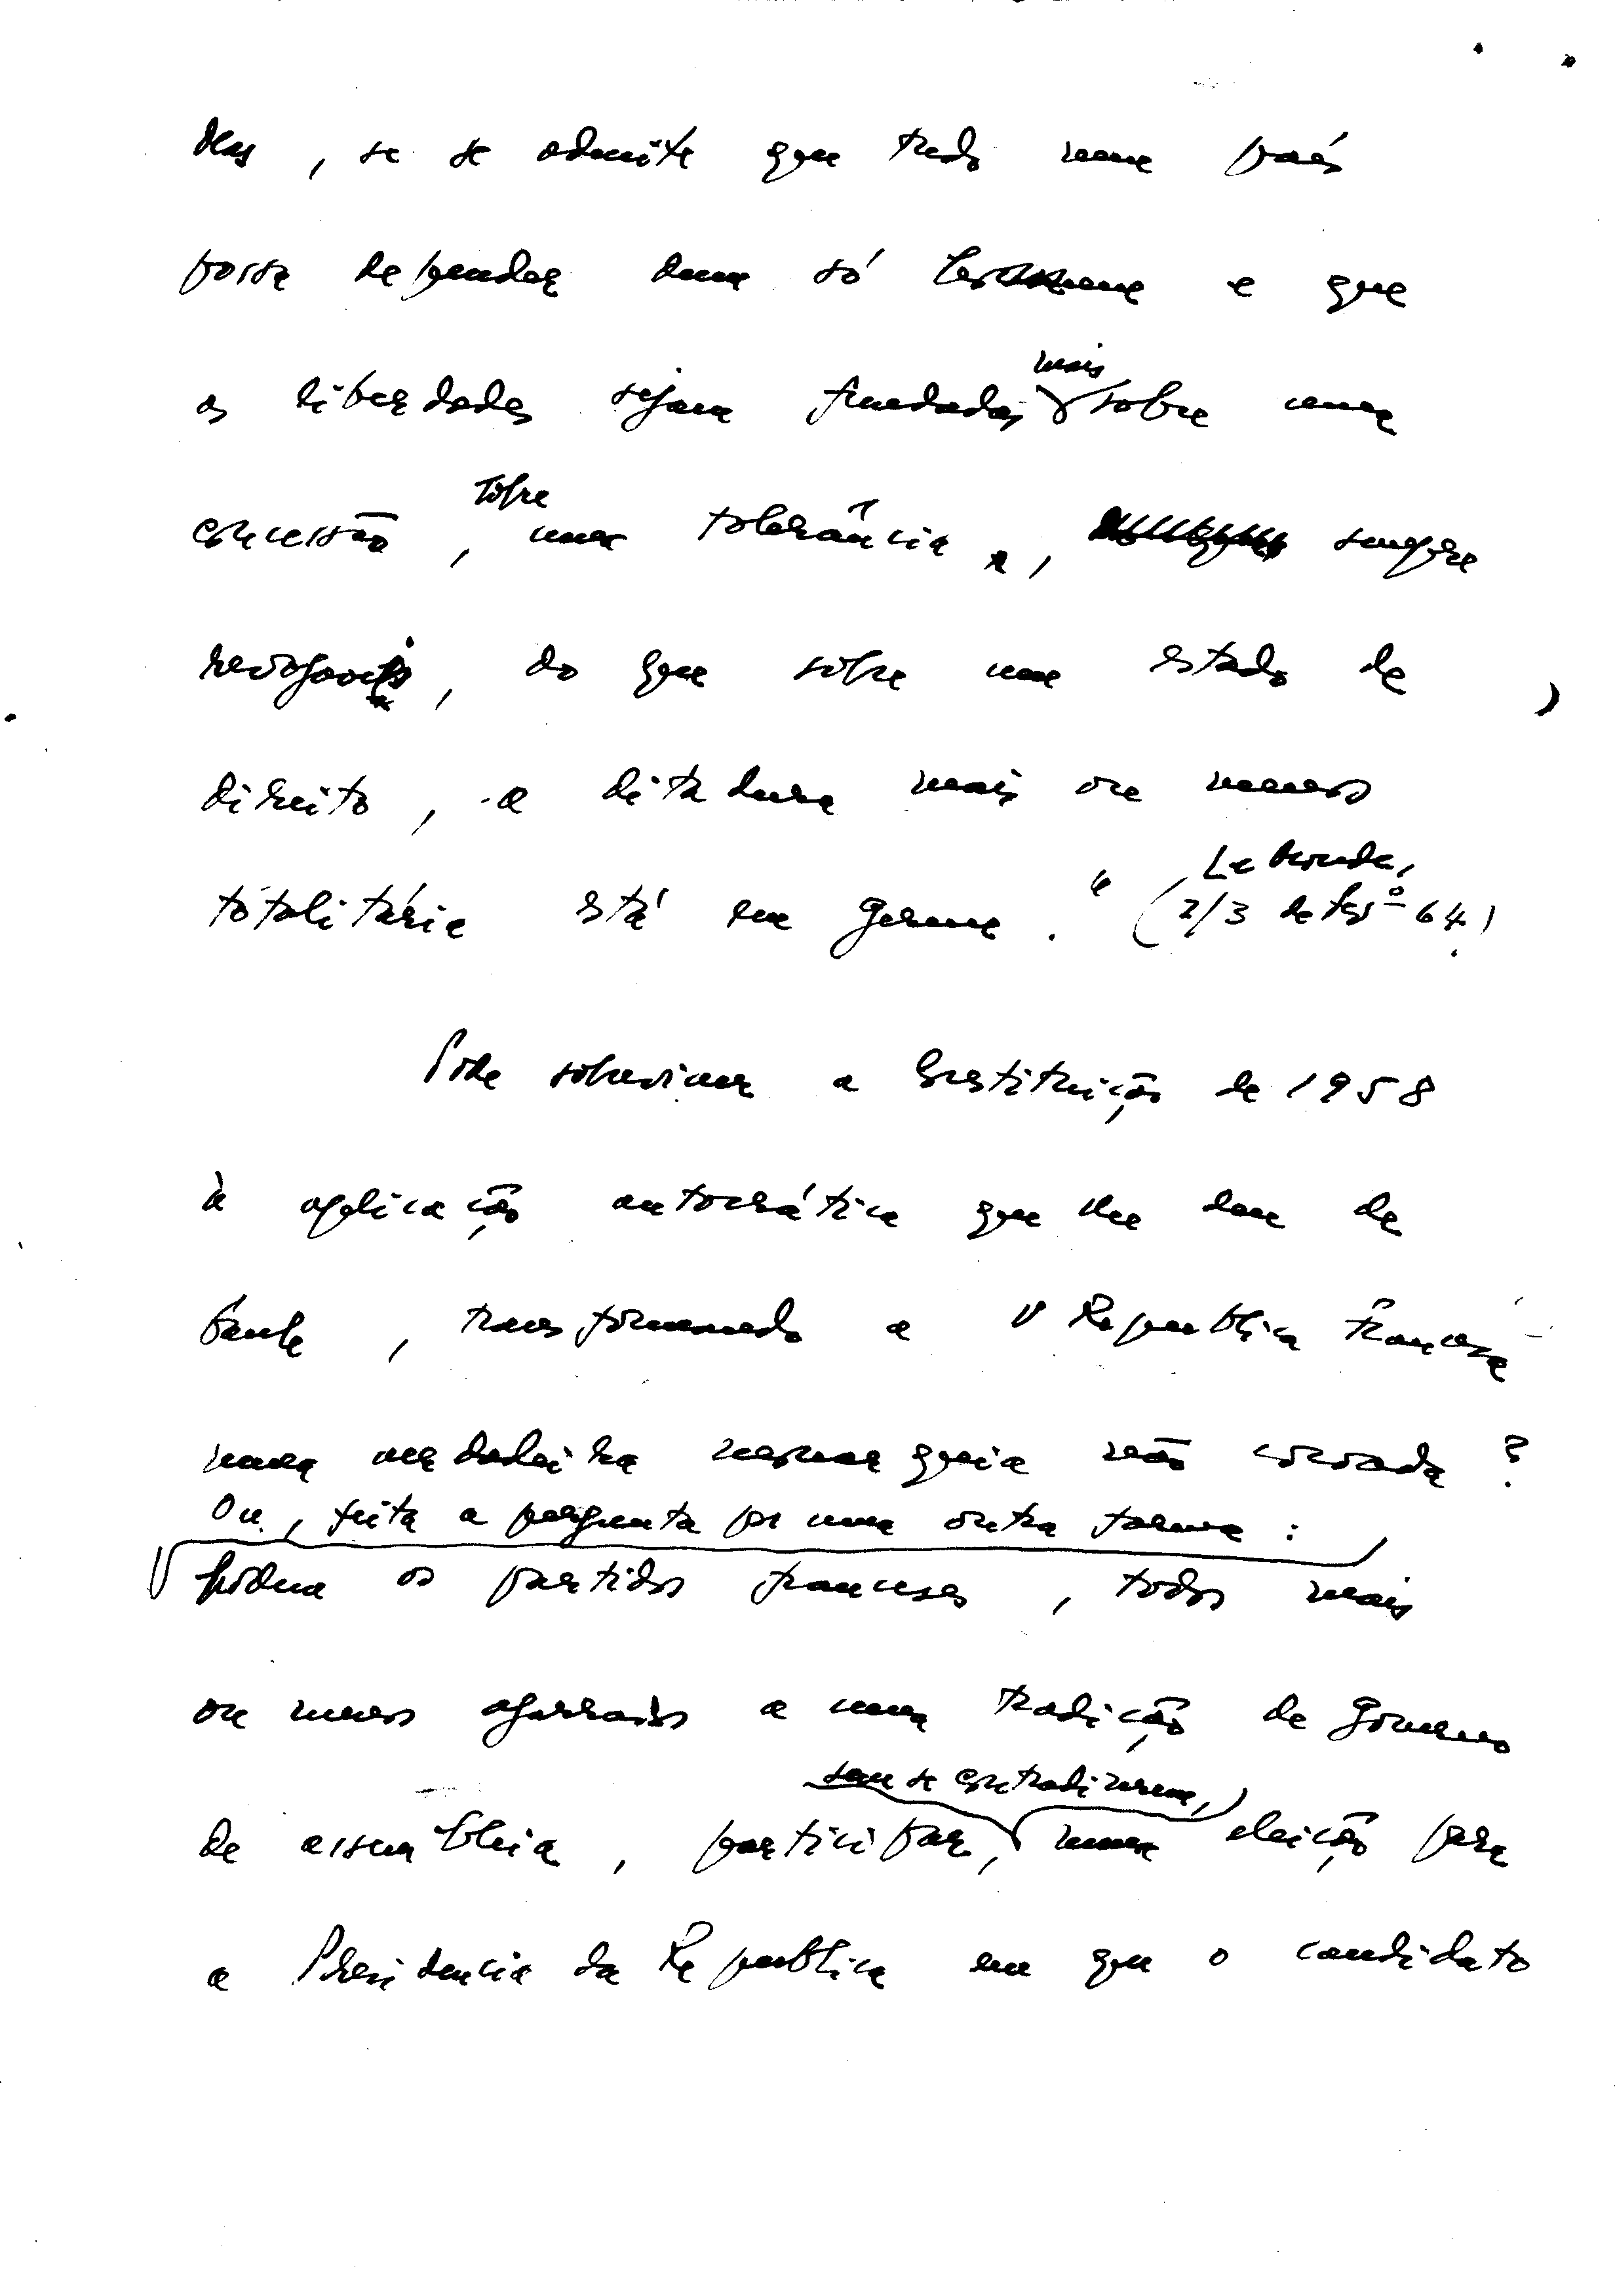 Mas, se se admite que tudo num país
possa depender dum só homem e que
as liberdades sejam fundadas mais sobre uma
concessão, sobre uma tolerância, sempre
revogáveis, do que sobre um estado de
direito, a ditadura mais ou menos
totalitária está em germe." (Le Monde,
2/3 de Fevº 64)
Pode sobreviver a Constituição de 1958
à aplicação autocrática que lhe deu de
Gaulle, transformando a V Republica Francesa
numa verdadeira monarquia não coroada?
Ou, feita a pergunta por uma outra forma:
podem os partidos franceses, todos mais
ou menos agarrados a uma tradição de Governo
de assembleia, participar, sem se contradizerem, numa eleição para
a Presidencia da Republica em que o candidato